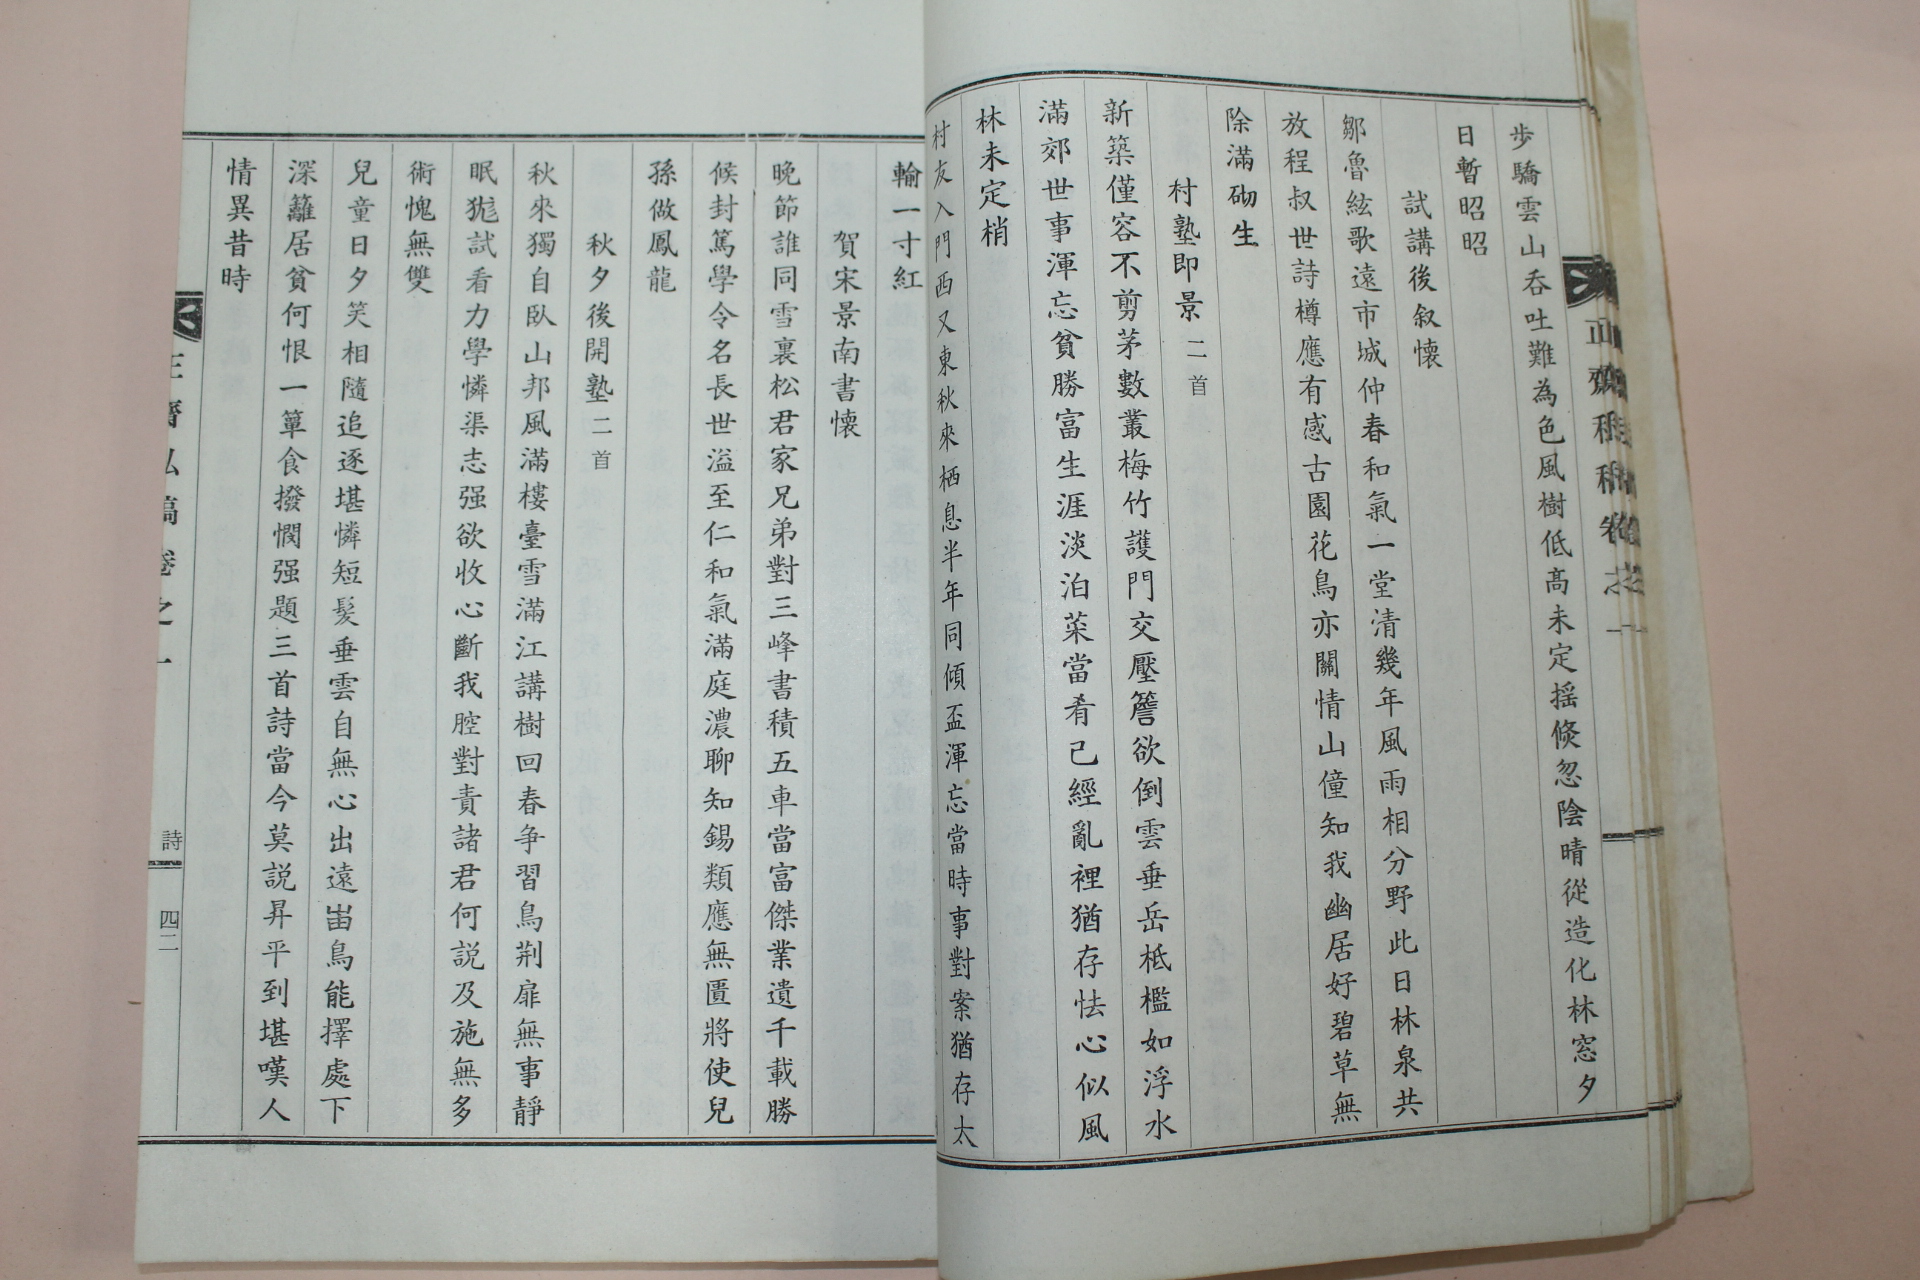 步驕雲山呑吐難為色風樹低高未定揺倏忽陰晴從造化林窓夕
日暫昭昭
試講後叙懷
鄒魯絃歌遠市城仲春和氣一堂清幾年風雨相分野此日林泉共
放程叔世詩樽應有感古園花鳥亦關情山僮知我幽居好碧草無
除滿砌生
村塾即景二首
新築僅容不剪茅數叢梅竹護門交壓簷欲倒雲垂岳柢檻如浮水
滿郊世事渾忘貧勝富生涯淡泊菜當肴己經亂裡猶存怯心似風
林未定梢
村友入門西又東秋來栖息半年同傾盃渾忘當時事對案猶存太
輸一寸紅
賀宋景南書懷
晚節誰同雪裏松君家兄弟對三峰書積五車當富傑業遺千載勝
候封篤學令名長世溢至仁和氣滿庭濃聊知錫類應無匱將使兒
孫做鳳龍
秋夕後開塾二首
秋來獨自臥山邦風滿樓臺雪滿江講樹回春争習鳥荆扉無事靜
眠狵試看力學憐渠志强欲收心斷我腔對責諸君何説及施無多
術愧無雙
兒童日夕笑相隨追逐堪憐短髮垂雲自無心出遠峀鳥能擇處下
深籬居貧何恨一簞食撥憫强題三首詩當今莫説昇平到堪嘆人
情異昔時
正齋私稿卷之一
詩
四二